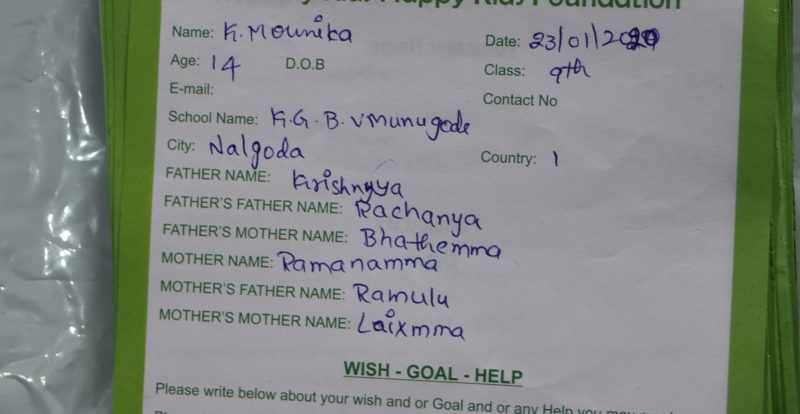 Happy Kids Foundation
Name: K. Mounika Date: 23/01/2020
Age: 14 D.O.B Class: 9th
E-mail: Contact No
School Name: K.G.B.V munugode
City: Nalgoda Country: 1
FATHER NAME: Krishnyya
FATHER'S FATHER NAME: Rachanya
FATHER'S MOTHER NAME: Bhathemma
MOTHER NAME: Ramanamma
MOTHER'S FATHER NAME: Ramulu
MOTHER'S MOTHER NAME: Laixmma
WISH - GOAL - HELP
Please write below about your wish and or Goal and or any Help you may